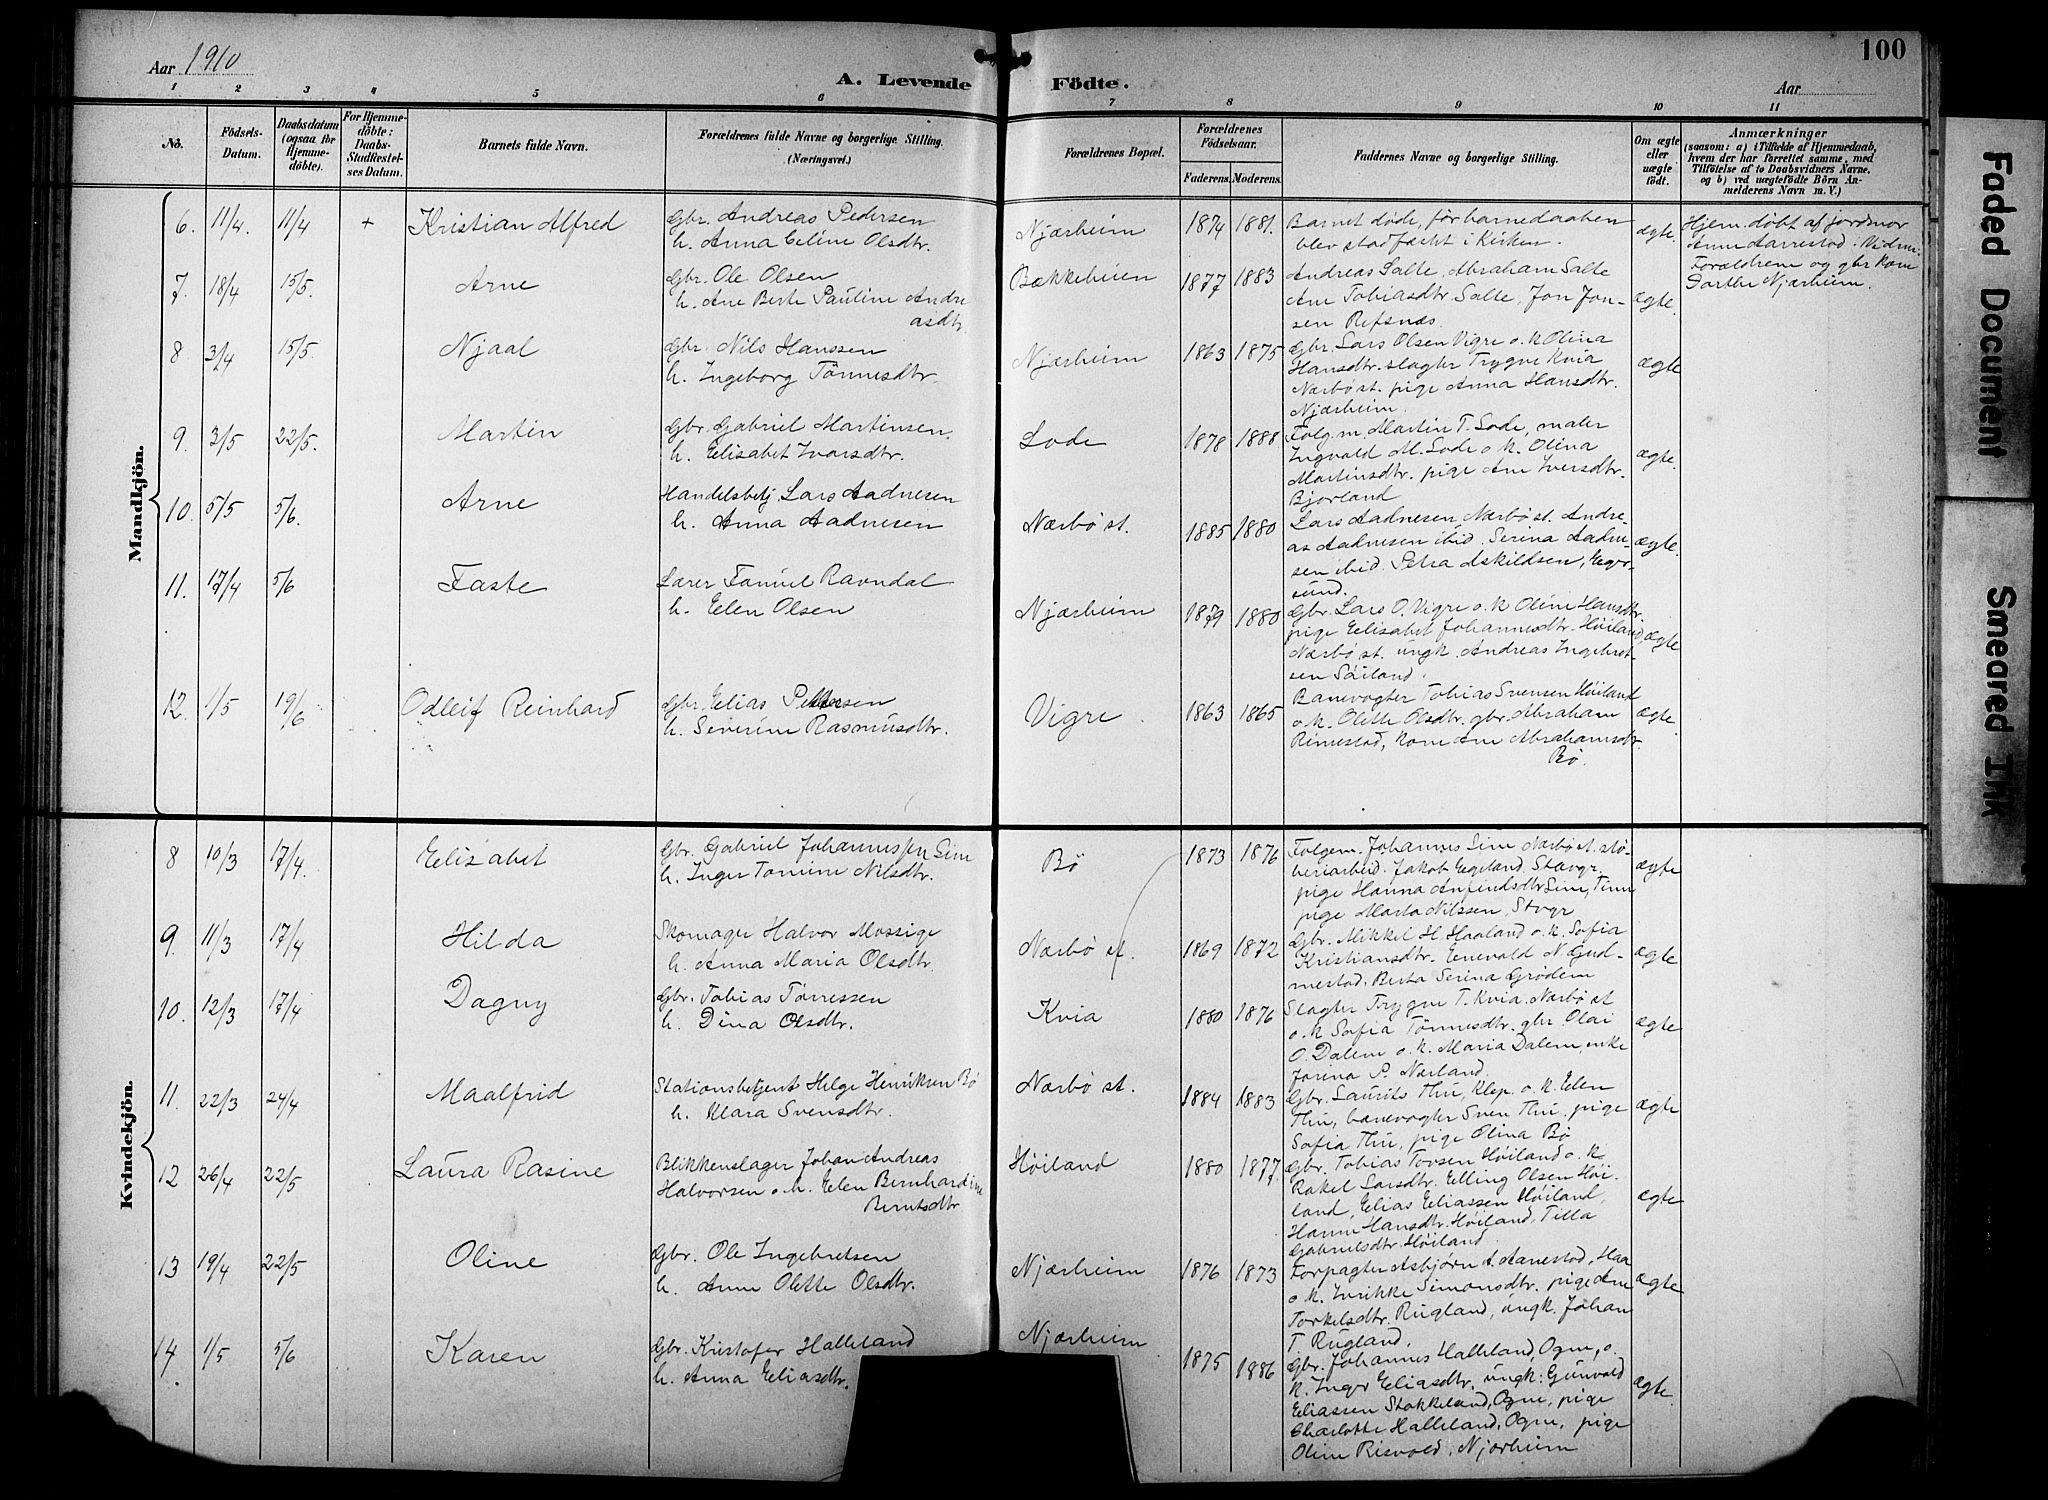 Aar 1910
A. Levende Födte.
100
Aar
1 2 3 4 5 6 7 8 9 10 11
No.
Födsels-Datum.
Daabsdatum (ogsaa for Hjemmedöbte).
For Hjemmedöbte: Daabs-Stadfæstelses Datum.
Barnets fulde Navn.
Forældrenes fulde Navne og borgerlige Stilling.
(Næringsvei.)
Forældrenes Bopæl.
Forældrenes Födselsaar.
Faderens. Moderens.
Faddernes Navne og borgerlige Stilling.
Om ægte eller uægte födt.
Anmærkninger
(saasom: a) i Tilfælde af Hjemmedaab,
hvem der har forrettet samme, med
Tilföielse af to Daabsvidners Navne.
og b) ved uægtefödte Börn Anmelderens Navn m. V.)
Mandkjön.
6. 11/4. 11/4 + Kristian Alfred
Gbr. Andreas Pedersen
h. Anna Eeline Olsdtr.
Njærheim 1874 1881.
Barnet døde, før barnedaaben
blev stadfæstet i Kirken.
ægte.
Hjem.døbt af jordmor
Anna Aarrestad. Vidni:
Forældrene og gbr kone
Dorthe Njærheim.
7. 18/4 15/5. Arne
Gbr. Ole Olsen
h. Ane Berte Pauline Andre
asdtr.
Bækkeheien 1877 1883
Andreas Salte, Abraham Salte
Ane Tobiasdtr. Salte, Jon Jon-
sen Refsnæs.
ægte.
8 3/4 15/5. Njaal
Gbr. Nils Hanssen
h. Ingeborg Tønnesdtr.
Njærheim 1863 1875
Gbr. Lars Olsen Vigre o. k Olina
Hansdtr. slagter Trygve Kvia
Nærbø st. pige Anna Hansdtr.
Njærheim.
ægte
9. 3/5 22/5. Martin
Gbr. Gabriel Martinsen.
h. Elisabet Ivarsdtr.
Lode 1878 1888
Følg.m. Martin T. Lode, maler
Ingvald M. Lode o k. Olina
Martinsdtr. pige Ane Iversdtr.
Bjorland
ægte.
10. 5/5 5/6. Arne
Handelsbetj Lars Aadnesen
h. Anna Aadnesen
Nærbø st. 1885 1880
Lars Aadnesen Nærbø st. Andre-
as Aadnesen ibid. Serina Aadne-
sen ibid. Petra Askildsen, Eger-
sund.
ægte.
11. 17/4 5/6 Faste
Lærer Samuel Ravndal
h. Eelen Olsen
Njærheim 1879 1880
Gbr. Lars O. Vigre o. k Oline Hansdtr.
pige Eelisabet Johannesdtr. Høiland
Nærbø st. ungk. Andreas Ingebret-
sen Søiland.
ægte
12. 1/5 19/6 Odleif Reinhard
Gbr. Eelias Pedersen
h. Severine Rasmusdtr.
Vigre. 1863 1865
Banevogter Tobias Svensen Høiland
o. k. Olette Olsdtr. gbr. Abraham
Rimestad, kone Ane Abrahamsdtr.
Bø.
ægte.
Kvindekjön.
8 10/3 17/4. Eelisabet
Gbr. Gabriel Johannessen Sim
h. Inger Tomine Nilsdtr.
Bø 1873 1876
Følgem. Johannes Sim Nærbø st. stø-
beriarbeid. Jakob Eegeland, Stavgr.
pige Hanna Anfindsdtr Sim, Time
pige Marta Nilssen, Stvgr
ægte
9. 11/3 17/4 Hilda
Skomager Halvor Mossige
h. Anna Maria Olsdtr.
Nærbø st. 1869 1872
Gbr. Mikkel H. Haaland o. k. Sofia
Kristiansdtr. Eenevald N. Gud-
mestad. Berta Serina Grødem
ægte
10. 12/3 17/4 Dagny
Gbr. Tobias Tørressen
h. Dina Olsdtr.
Kvia 1880 1876
Slagter Trygve T. Kvia. Nærbø st
o. k Sofia Tønnesdtr. gbr. Olai
O. Dalem o. k. Maria Dalem, enke
Jorina P. Nærland.
ægte
11. 22/3 24/4 Maalfrid
Stationsbetjent Helge Henriksen Bø
h. Klara Svensdtr.
Nærbø st. 1884 1883
Gbr. Laurits Thu, Klep. o. k. Eelen
Thu, banevogter Sven Thu. pige
Sofia Thu, pige Olina Bø
ægte
12 26/4 22/5 Laura Rasine
Blikkenslager Johan Andreas
Halvorsen o. h. Eelen Bernhardine
Berntsdtr
Høiland 1880 1877.
Gbr. Tobias Tovsen Høiland o. k.
Rakel Larsdtr. Elling Olsen Høi-
land, Eelias Eeliassen Høiland,
Hanne Hansdtr. Høiland, Tilla
Gabrielsdtr. Høiland
ægte
13 19/4 22/5 Oline
Gbr. Ole Ingebretsen
h. Anne Olette Olsdtr.
Njærheim 1876 1873
Forpagter Asbjørn A. Aanestad, Haa
o. k. Inrikke Simonsdtr. pige Ane
Torkelsdtr. Rugland, ungk. Johan
T. Rugland.
ægte
14. 1/5 5/6 Karen
Gbr. Kristofer Halleland
h. Anna Eeliasdtr.
Njærheim 1875 1886
Gbr. Johannes Halleland, Ogne, o.
k. Inger Eeliasdtr. ungk. Gunvald
Eeliassen Stokkeland, Ogne, pige
Charlotte Halleland, Ogne, pige
Oline Risvold. Njærheim
ægte.
Faded Document
Smeared Ink